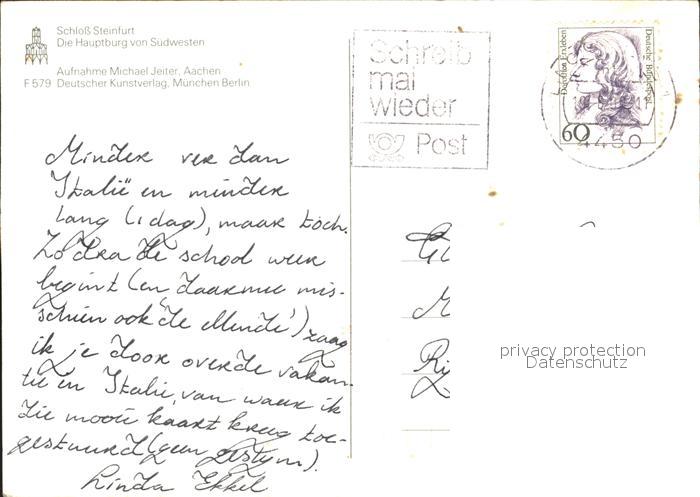 Schloß Steinfurt
Die Hauptburg von Südwesten
Aufnahme Michael Jeiter, Aachen
F 579 Deutscher Kunstverlag, München Berlin
Schreib
mal
wieder
Post
Dorothea Erxleben
Deutsche Bundespost
60
4430
Minder ver dan
Italië en minder
lang (1 dag), maar toch.
Zodra de school weer
begint (en daarmee mis-
schien ook 'de Mende')
ik je door over de vakan-
tie in Italië, van waar ik
die mooie kaart kreeg toe-
gestuurd (geen
Linda Ekkel
privacy protection
Datenschutz